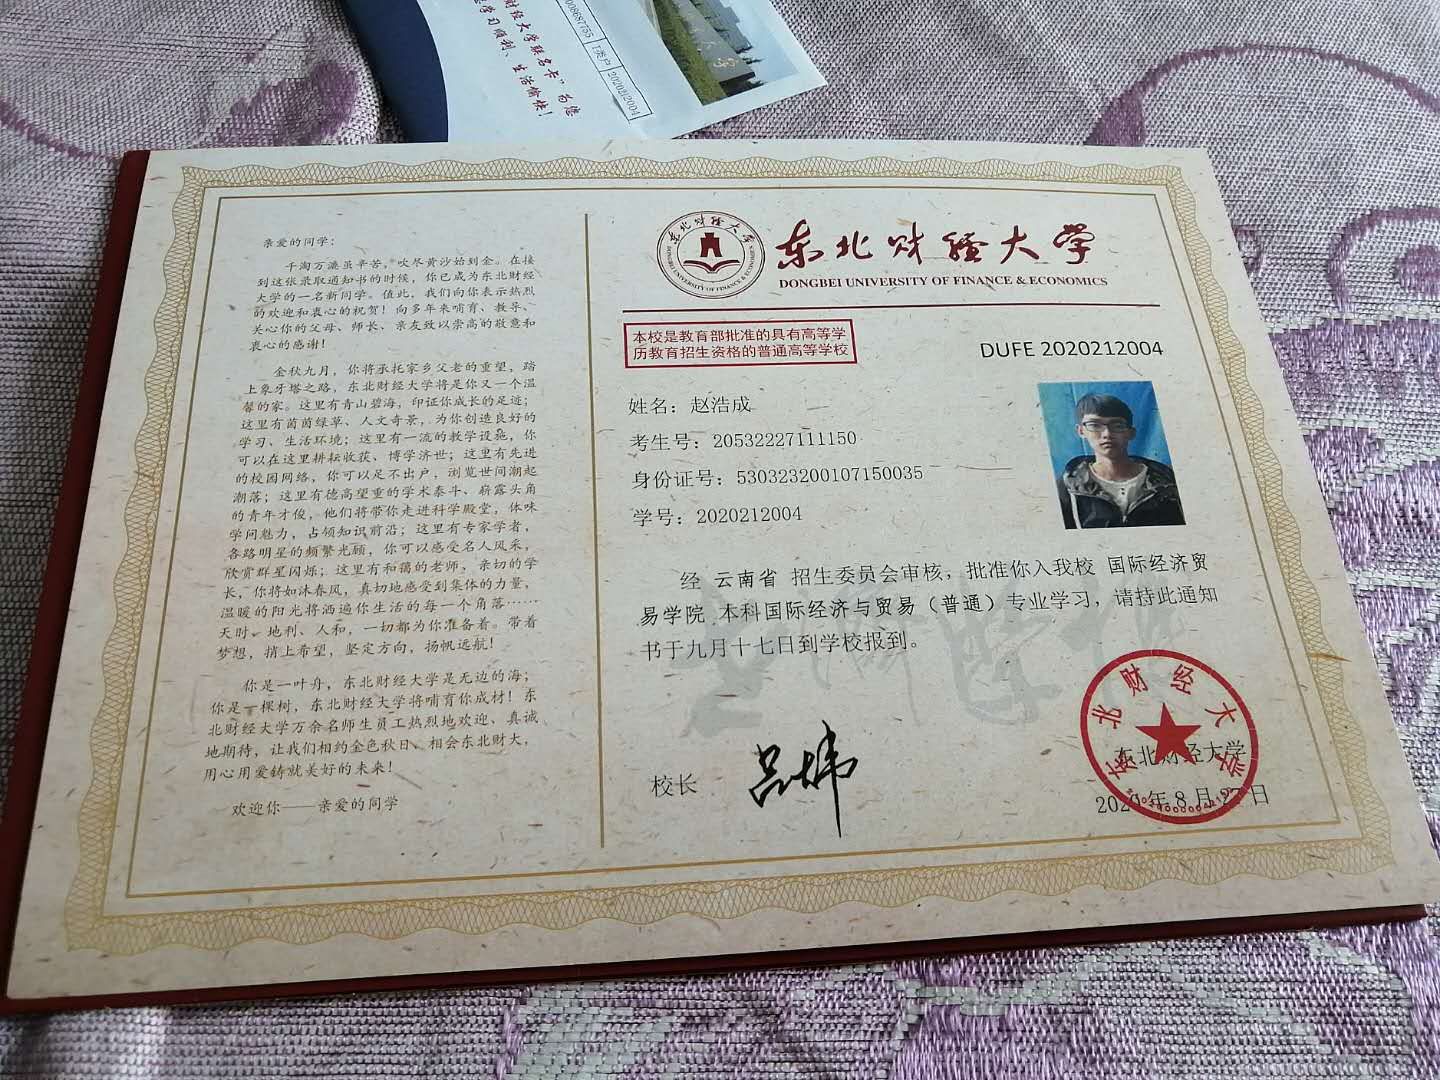 财经大学联名卡”为您
学习顺利、生活愉快！
I类户
2020212004
亲爱的同学：
千淘万漉虽辛苦，吹尽黄沙始到金。在接
到这张录取通知书的时候，你已成为东北财经
大学的一名新同学。值此，我们向你表示热烈
的欢迎和衷心的祝贺！向多年来哺育、教导、
关心你的父母、师长、亲友致以崇高的敬意和
衷心的感谢！
金秋九月，你将承托家乡父老的重望，踏
上象牙塔之路，东北财经大学将是你又一个温
馨的家。这里有青山碧海，印证你成长的足迹；
这里有茵茵绿草、人文奇景，为你创造良好的
学习、生活环境；这里有一流的教学设施，你
可以在这里耕耘收获、博学济世；这里有先进
的校园网络，你可以足不出户，浏览世间潮起
潮落；这里有德高望重的学术泰斗、崭露头角
的青年才俊，他们将带你走进科学殿堂，体味
学问魅力，占领知识前沿；这里有专家学者，
各路明星的频繁光顾，你可以感受名人风采，
欣赏群星闪烁；这里有和蔼的老师，亲切的学
长，你将如沐春风，真切地感受到集体的力量，
温暖的阳光将洒遍你生活的每一个角落……
天时、地利、人和，一切都为你准备着。带着
梦想，捎上希望，坚定方向，扬帆远航！
你是一叶舟，东北财经大学是无边的海；
你是一棵树，东北财经大学将哺育你成材！东
北财经大学万余名师生员工热烈地欢迎、真诚
地期待，让我们相约金色秋日、相会东北财大，
用心用爱铸就美好的未来！
欢迎你——亲爱的同学
东北财经大学
DONGBEI UNIVERSITY OF FINANCE & ECONOMICS
东北财经大学
DONGBEI UNIVERSITY OF FINANCE & ECONOMICS
本校是教育部批准的具有高等学
历教育招生资格的普通高等学校
DUFE 2020212004
姓名：赵浩成
考生号：20532227111150
身份证号：530323200107150035
学号：2020212004
经 云南省 招生委员会审核，批准你入我校 国际经济贸
易学院 本科国际经济与贸易（普通）专业学习，请持此通知
书于九月十七日到学校报到。
校长 吕炜
东北财经大学
东北财经大学
2020年8月 日